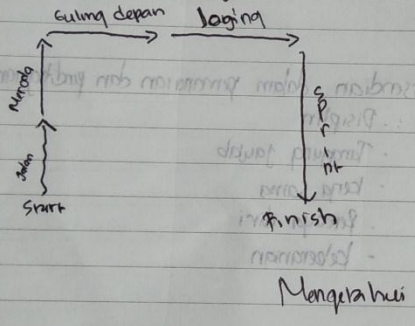 Guling depan
Joging
Meroda
Jalan
Start
Sprint
Finish
Mengetahui